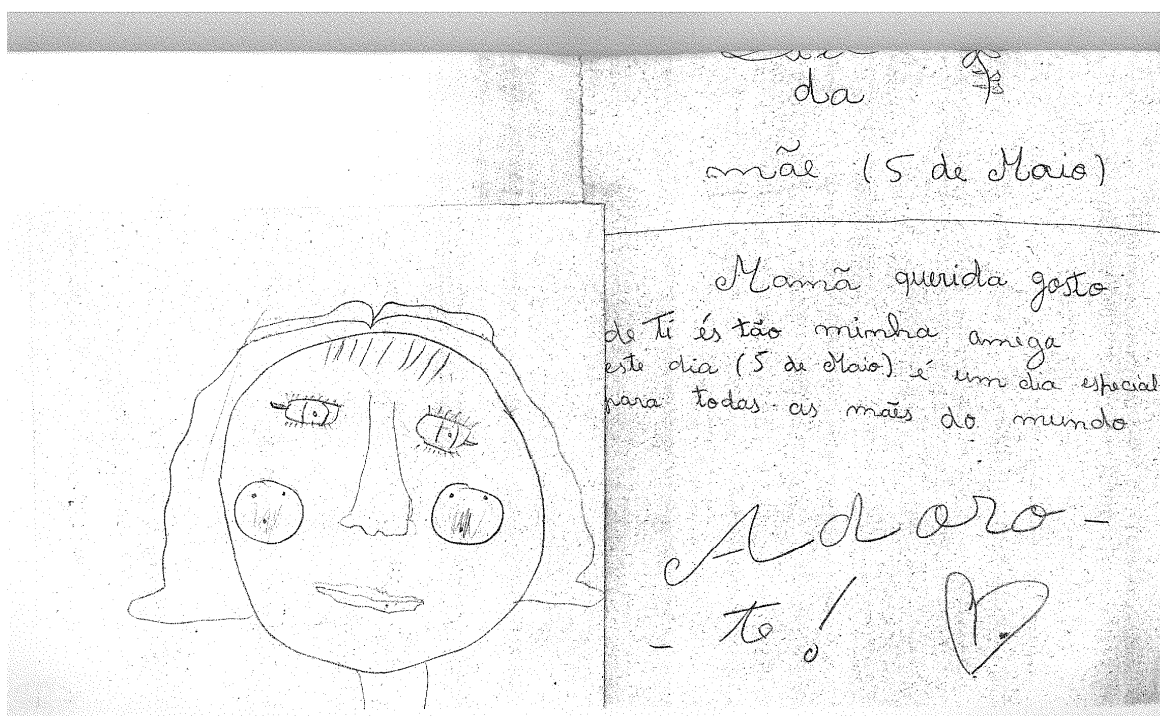 da
mãe (5 de Maio)
Mamã querida gosto
de Ti és tão minha amega
este dia (5 de Maio) é um dia especial
para todas as mães do mundo
Adoro-
-te!